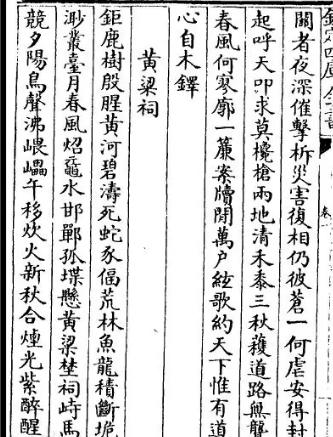 欽定四庫全書
者夜深催擊析災害復相仍彼蒼一何虐安得封
起呼天叩求莫欃槍兩地清禾黍三秋穫道路無
春風何寥廓一簾案牘閒萬户絃歌約天下惟有道
心自木鐸
黄粱祠
鉅鹿樹殷腥黄河碧濤死蛇豕偪荒林魚龍積斷垝
渺叢臺月春風炤水邯鄲孤堞懸黄粱埜祠峙馬
競夕陽鳥聲沸嵔㠥午移炊火新秋合煙光紫醉醒